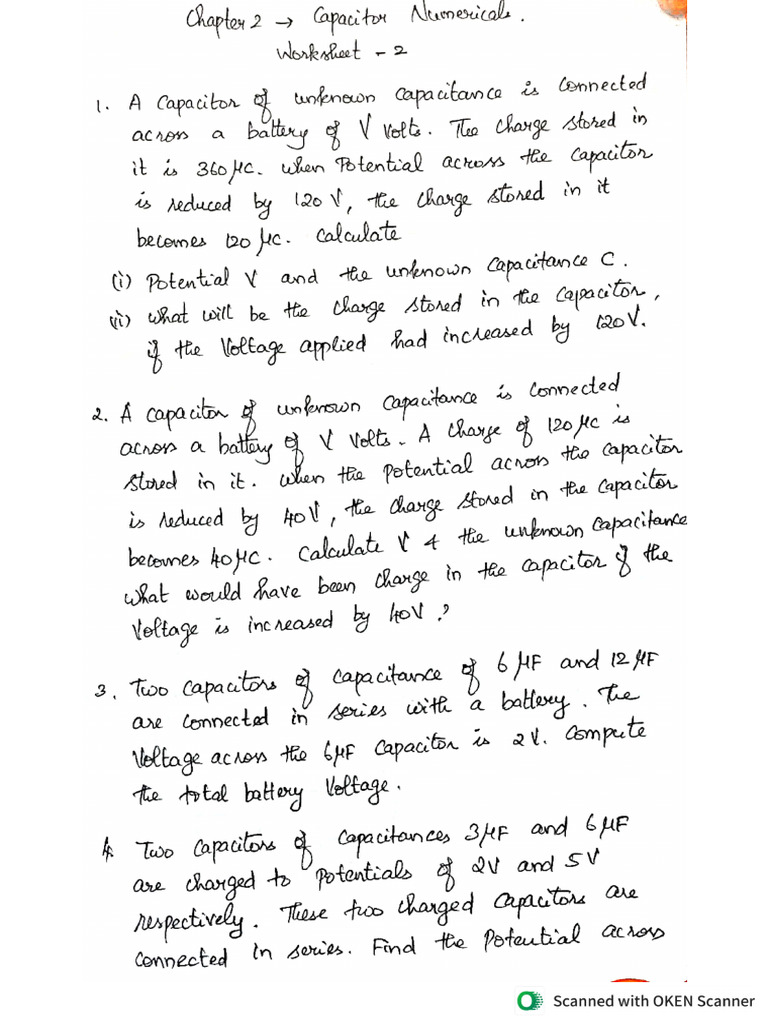 Chapter 2 → Capacitor Numericals.
Worksheet - 2
1. A Capacitor of unknown capacitance is connected
across a battery of V volts. The charge stored in
it is 360 μC. when Potential across the capacitor
is reduced by 120 V, the charge stored in it
becomes 120 μC. Calculate
(i) Potential V and the unknown capacitance C.
(ii) What will be the charge stored in the capacitor,
if the Voltage applied had increased by 120V.
2. A capacitor of unknown capacitance is connected
across a battery of V Volts. A charge of 120 μC is
stored in it. When the potential across the capacitor
is reduced by 40V, the charge stored in the capacitor
becomes 40 μC. Calculate V & the unknown capacitance
what would have been charge in the capacitor if the
Voltage is increased by 40V ?
3. Two capacitors of capacitance of 6 μF and 12 μF
are connected in series with a battery. The
Voltage across the 6μF capacitor is 2V. Compute
the total battery Voltage.
4. Two capacitors of capacitances 3 μF and 6 μF
are charged to potentials of 2V and 5V
respectively. These two charged capacitors are
connected in series. Find the Potential across
Scanned with OKEN Scanner